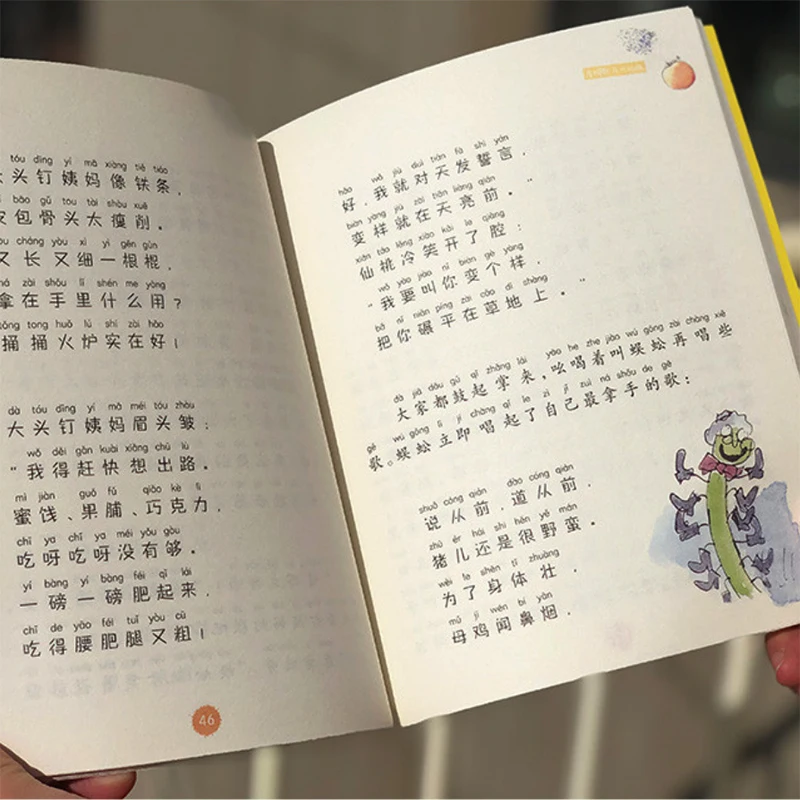 tóu dīng yí mā xiàng tiě tiáo
大头钉姨妈像铁条，
bāo gǔ tou tài shòu xuē
皮包骨头太瘦削。
cháng yòu xì yì gēn gùn
又长又细一根棍，
ná zài shǒu lǐ shén me yòng
拿在手里什么用？
tǒng tong huǒ lú shí zài hǎo
捅捅火炉实在好！
dà tóu dīng yí mā méi tóu zhòu
大头钉姨妈眉头皱：
wǒ děi gǎn kuài xiǎng chū lù
“我得赶快想出路。
mì jiàn guǒ fǔ qiǎo kè lì
蜜饯、果脯、巧克力，
chī ya chī ya méi yǒu gòu
吃呀吃呀没有够。
yí bàng yí bàng féi qǐ lái
一磅一磅肥起来，
chī de yāo féi tuǐ yòu cū
吃得腰肥腿又粗！
46
hǎo wǒ jiù duì tiān fā shì yán
好，我就对天发誓言，
biàn yàng jiù zài tiān liàng qián
变样就在天亮前。”
xiān táo lěng xiào kāi le qiāng
仙桃冷笑开了腔：
wǒ yào jiào nǐ biàn gè yàng
“我要叫你变个样，
bǎ nǐ niǎn píng zài cǎo dì shàng
把你碾平在草地上。”
dà jiā dōu gǔ qǐ zhǎng lái yāo he zhe jiào wú gōng zài chàng xiē
大家都鼓起掌来，吆喝着叫蜈蚣再唱些
gē wú gōng lì jí chàng qǐ le zì jǐ zuì ná shǒu de gē
歌。蜈蚣立即唱起了自己最拿手的歌：
shuō cóng qián dào cóng qián
说从前，道从前，
zhū ér hái shì hěn yě mán
猪儿还是很野蛮。
wèi le shēn tǐ zhuàng
为了身体壮，
mǔ jī wén bí yān
母鸡闻鼻烟，